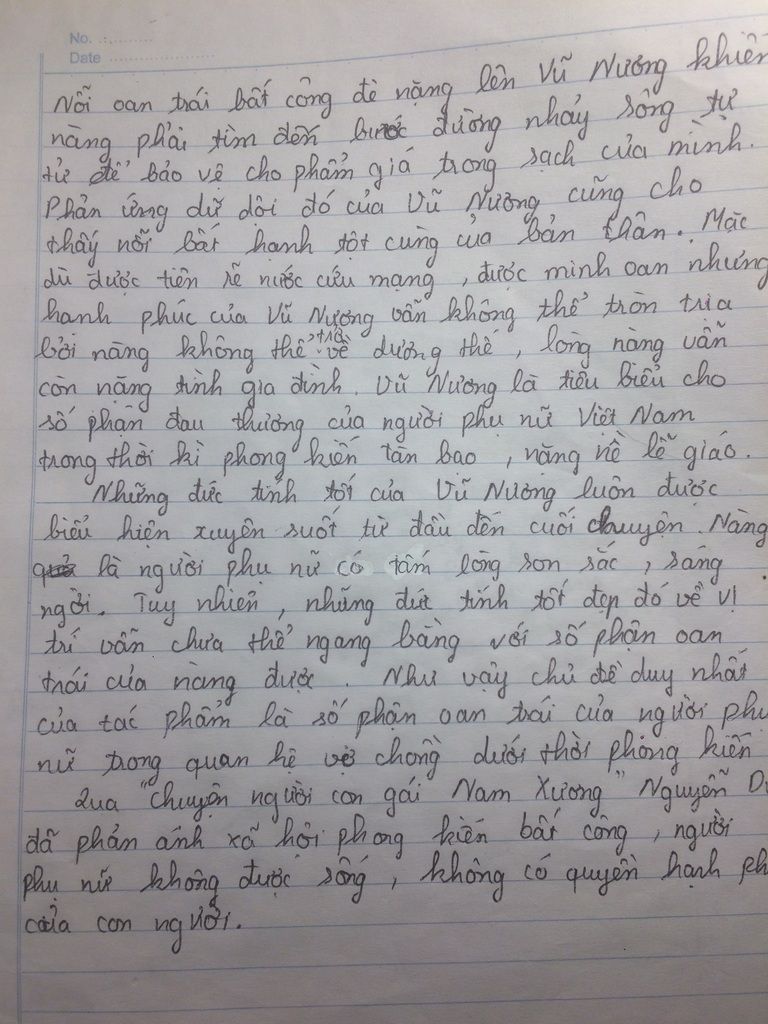 No. ...........
Date ........................
Nỗi oan trái bất công đè nặng lên Vũ Nương khiến
nàng phải tìm đến bước đường nhảy sông tự
tử để bảo vệ cho phẩm giá trong sạch của mình.
Phản ứng dữ dội đó của Vũ Nương cũng cho
thấy nỗi bất hạnh tột cùng của bản thân. Mặc
dù được tiên rẽ nước cứu mạng, được minh oan nhưng
hạnh phúc của Vũ Nương vẫn không thể tròn trịa
bởi nàng không thể trở về dương thế, lòng nàng vẫn
còn nặng tình gia đình. Vũ Nương là tiêu biểu cho
số phận đau thương của người phụ nữ Việt Nam
trong thời kì phong kiến tàn bạo, nặng nề lễ giáo.
Những đức tính tốt của Vũ Nương luôn được
biểu hiện xuyên suốt từ đầu đến cuối chuyện. Nàng
là người phụ nữ có tấm lòng son sắc, sáng
ngời. Tuy nhiên, những đức tính tốt đẹp đó về vị
trí vẫn chưa thể ngang bằng với số phận oan
trái của nàng được. Như vậy chủ đề duy nhất
của tác phẩm là số phận oan trái của người phụ
nữ trong quan hệ vợ chồng dưới thời phong kiến
Qua "Chuyện người con gái Nam Xương" Nguyễn D
đã phản ánh xã hội phong kiến bất công, người
phụ nữ không được sống, không có quyền hạnh ph
của con người.